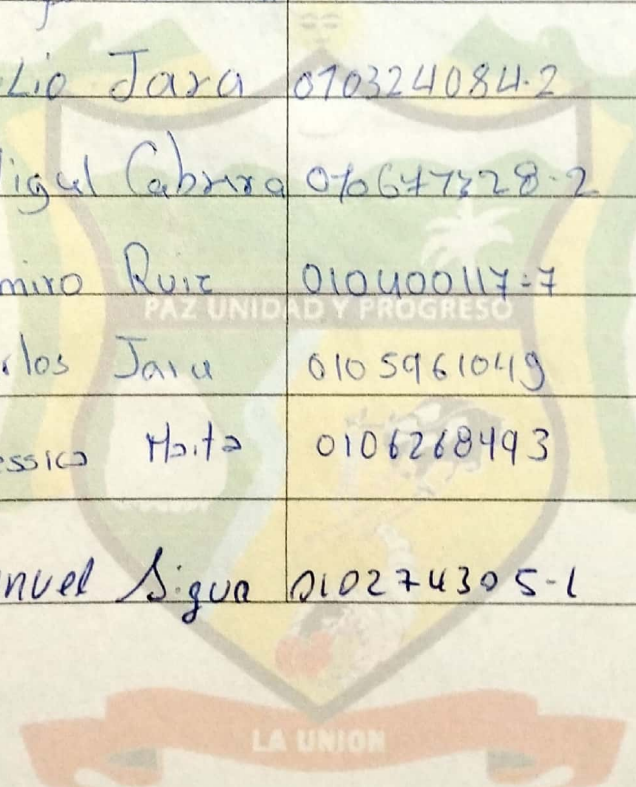 Lio Jara 010324084-2
Miguel Cabrera 010647328-2
miro Ruiz 010400117-7
rlos Jara 0105961049
essica Maita 0106268493
nuel Sigua 010274305-1
PAZ UNIDAD Y PROGRESO
LA UNION